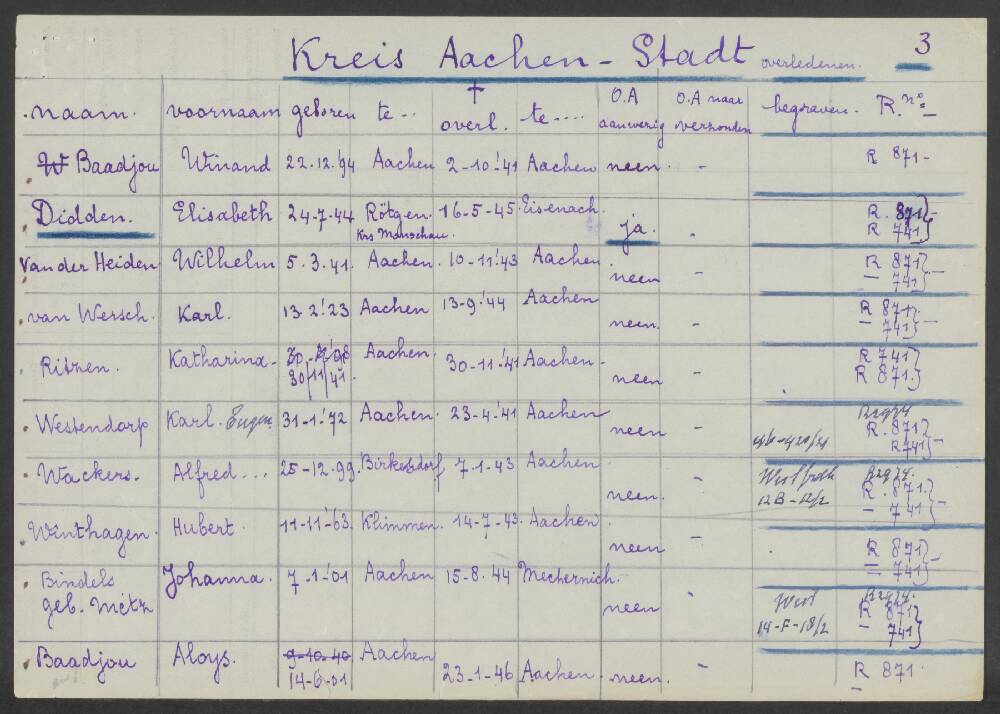 Kreis Aachen - Stadt overledenen. 3
naam. voornaam geboren te.. † overl. te.... O.A aanwezig O.A naar verzonden begraven. R. no=
Baadjou Winand 22.12.'94 Aachen 2-10-'41 Aachen neen - R 871-
Didden. Elisabeth 24-7-44 Rötgen. Krs Monschau. 16-5-45. Eisenach. ja. - R. 871 R 741 } -
Van der Heiden Wilhelm 5.3.41. Aachen. 10-11'43 Aachen neen - R 871 - 741 } -
van Wersch. Karl. 13.2.'23 Aachen 13-9.'44 Aachen neen. - R 871. - 741 } -
Ritzen. Katharina- 30/11/41. Aachen. 30-11-'41 Aachen- neen - R 741 R 871. }
Westendorp Karl. Eugen 31-1-'72 Aachen. 23-4-'41 Aachen neen - R. 871. R 741 } -
Wackers. Alfred... 25-12-99. Birkesdorf 7-1-43 Aachen. neen. - 12B-12/2 R. 871. - 741 } -
Winthagen. Hubert. 11-11-'63. Klimmen. 14-7-43. Aachen. neen - R 871 - 741 } -
Bindels geb. Métz Johanna. 7-1-'01 Aachen 15-8.'44 Mechernich. neen - West 14-F-18/2 R 871 - 741 }
Baadjou Aloys. 9-10-40 14-6-01 Aachen 23-1-46 Aachen neen. - R 871